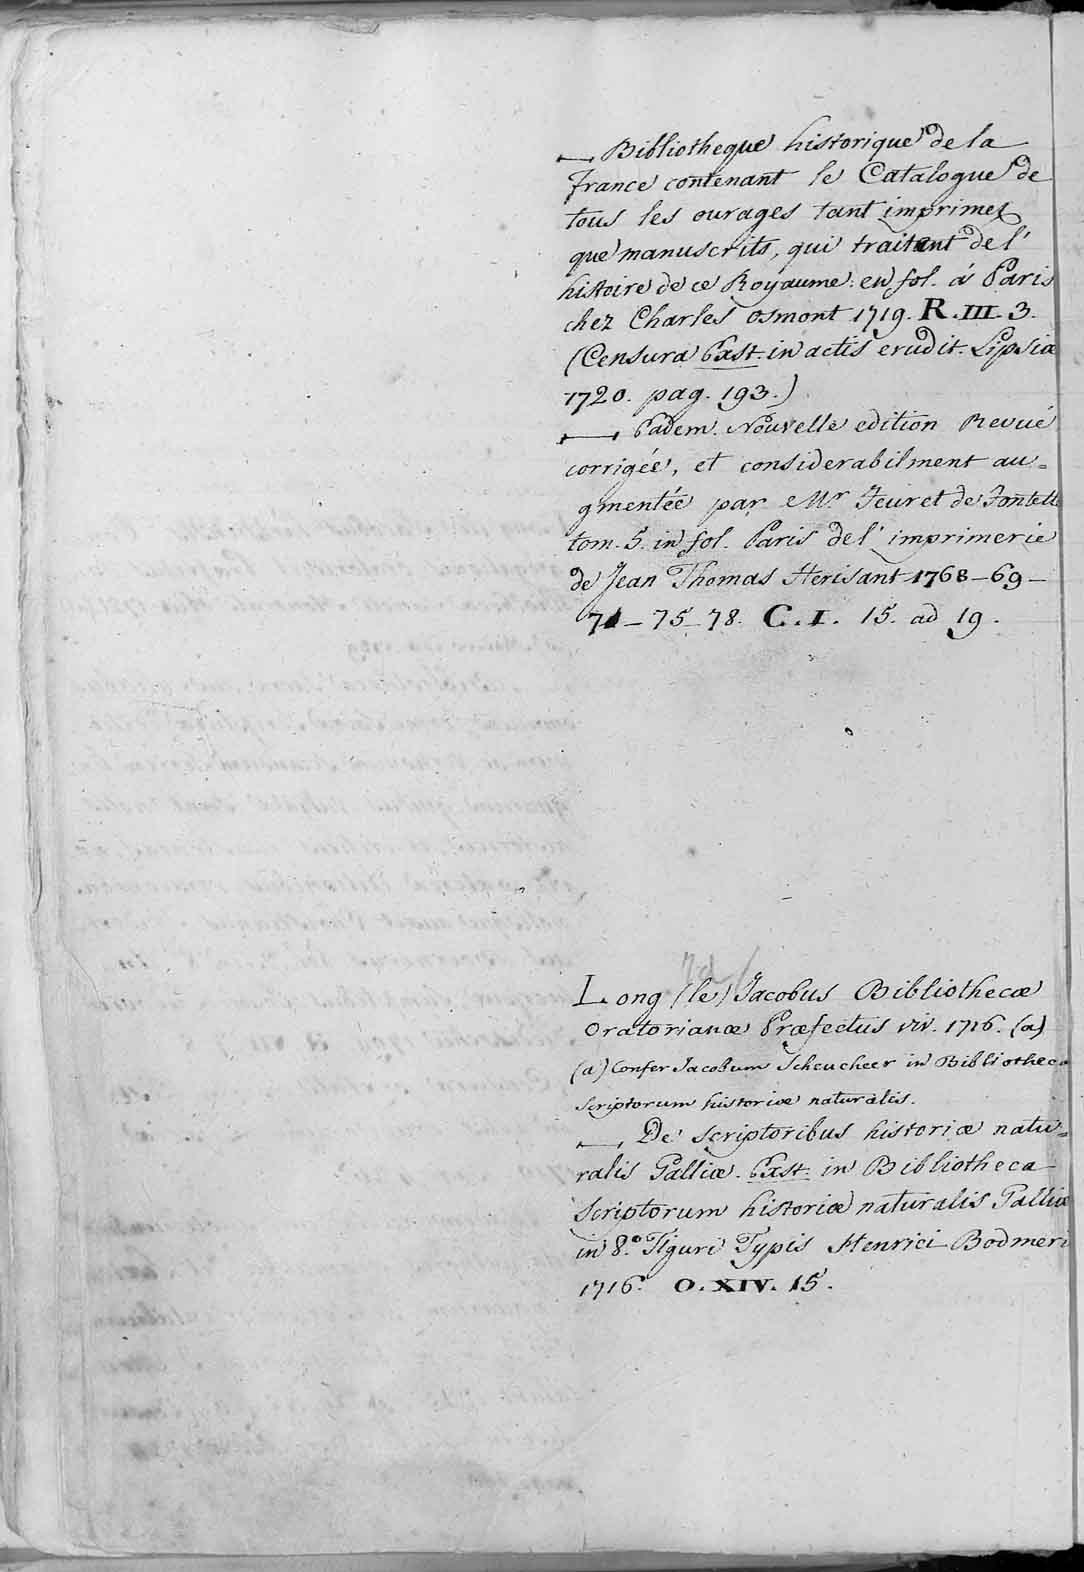 — Bibliotheque historique de la
france contenant le Catalogue de
tous les ourages tant imprimez
que manuscrits, qui traitent de l'
histoire de ce Royaume: en fol. á Paris
chez Charles Osmont 1719. R. III. 3.
(Censura Exst. in actis erudit. Lipsiæ
1720. pag. 193.)
— Eadem. Nouvelle edition Revué
corrigée, et considerabilment au=
gmentée par Mr. Fevret de Fontette
tom. 5. in fol. Paris de l' imprimerie
de Jean Thomas Herisant 1768-69-
71-75-78. C. I. 15. ad 19.
Long (le) Jacobus Bibliothecæ
Oratorianæ Præfectus viv. 1716. (a)
(a) Confer Jacobum Scheucheer in Bibliotheca
Scriptorum historiæ naturalis.
— De scriptoribus historiæ natu=
ralis Galliæ. Exst. in Bibliotheca
Scriptorum historiæ naturalis Galliæ
in 8.o Tiguri Typis Henrici Bodmeri
1716. O. XIV. 15.